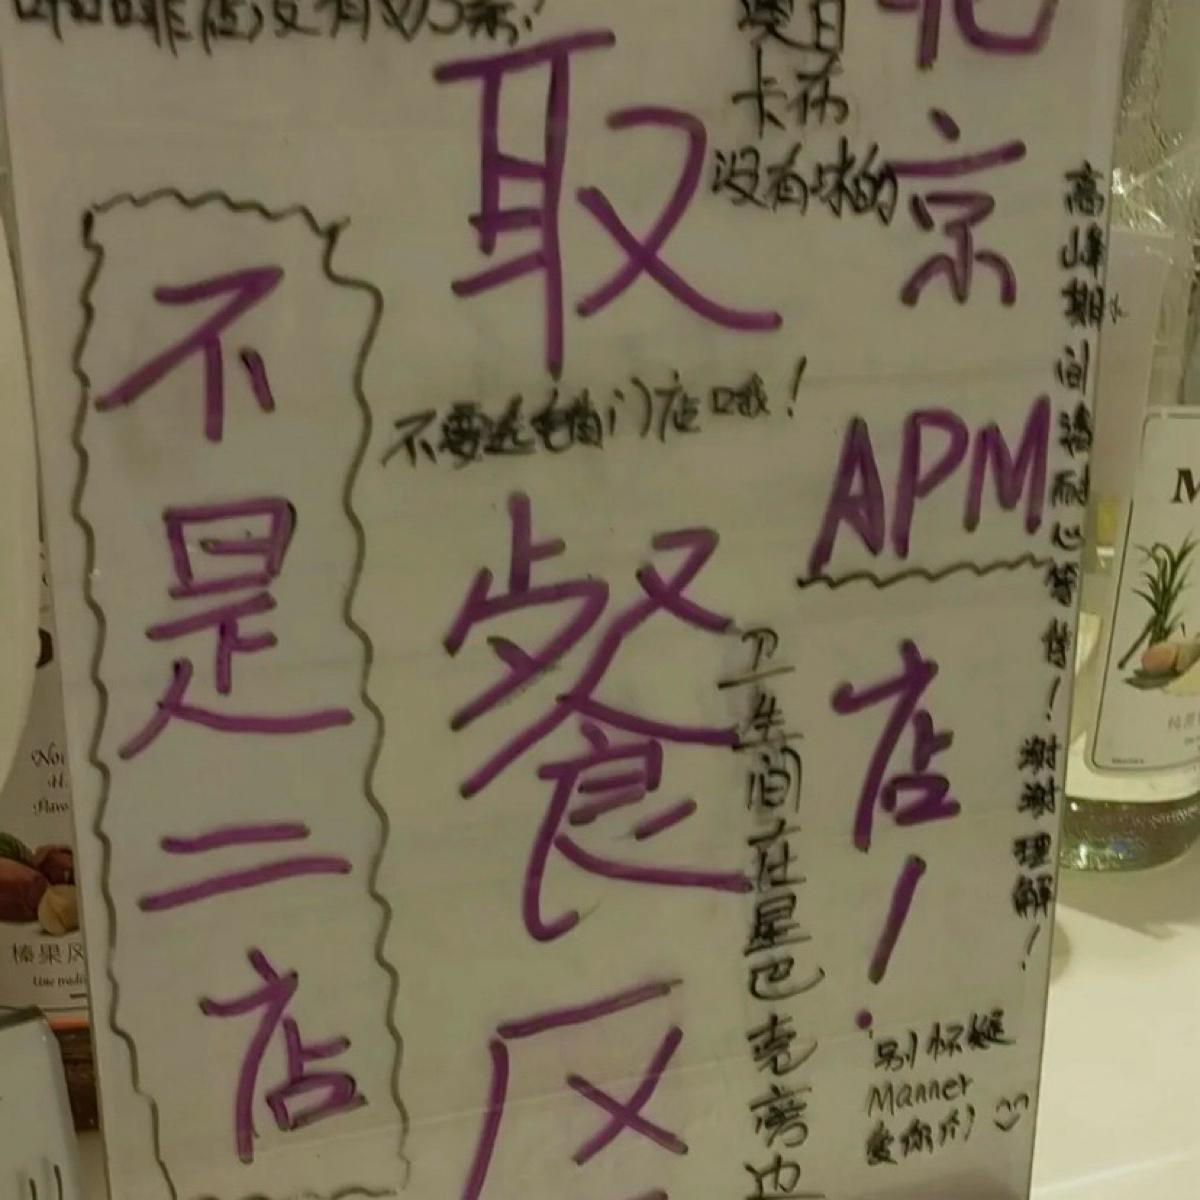 咖啡店没有奶茶！
取
餐
区
不要选错门店哦！
不
是
二
店
卡布
没有味的
北
京
APM
店！
高峰期间请耐心等待！谢谢理解！
卫生间在星巴克旁边
别怀疑
Manner
爱你们
M
榛果风